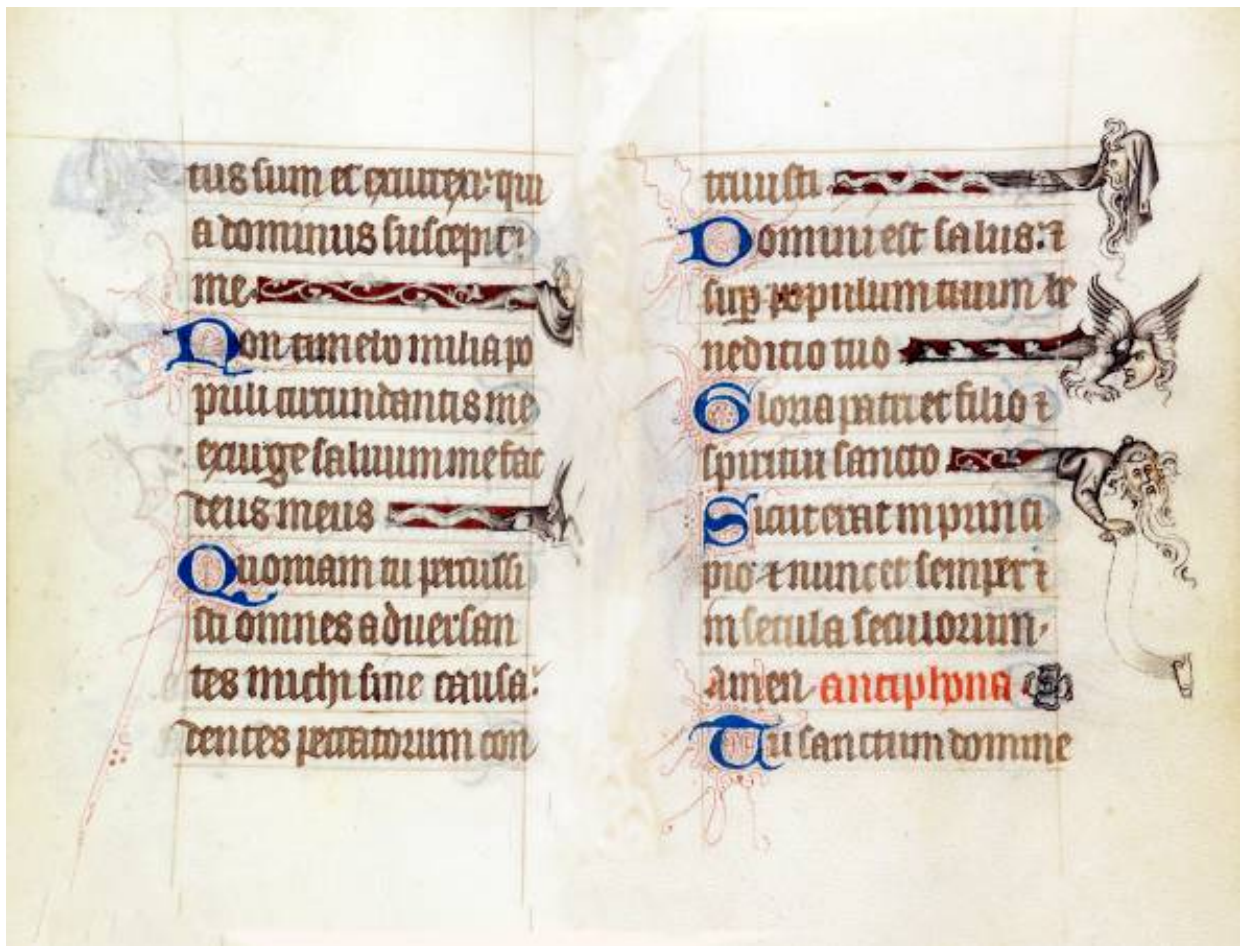 tus sum et exurrexi: qui
a dominus suscepit
me
Non timebo milia po
puli circundantis me
exurge saluum me fac
deus meus
Quoniam tu percussi
sti omnes aduersan
tes michi sine causa:
dentes peccatorum con
triuisti
Domini est salus: ⁊
sup populum tuum be
nedictio tuo
Gloria patri et filio ⁊
spiritui sancto
Sicut erat in princi
pio ⁊ nunc et semper ⁊
in secula seculorum
amen antiphona
Tu sanctum domine